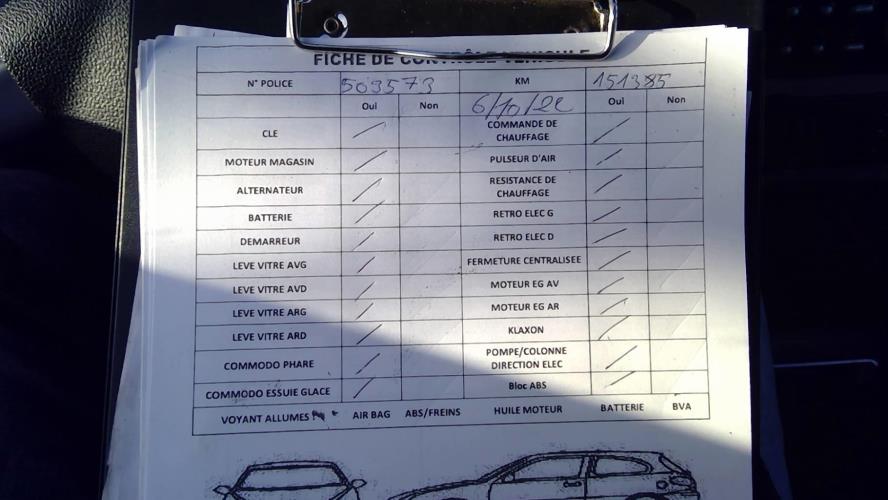 FICHE DE CONTRÔLE VEHICULE
N° POLICE 503573 KM 151385
Oui Non 6/10/22 Oui Non
CLE COMMANDE DE CHAUFFAGE
MOTEUR MAGASIN PULSEUR D'AIR
ALTERNATEUR RESISTANCE DE CHAUFFAGE
BATTERIE RETRO ELEC G
DEMARREUR RETRO ELEC D
LEVE VITRE AVG FERMETURE CENTRALISEE
LEVE VITRE AVD MOTEUR EG AV
LEVE VITRE ARG MOTEUR EG AR
LEVE VITRE ARD KLAXON
COMMODO PHARE POMPE/COLONNE DIRECTION ELEC
COMMODO ESSUIE GLACE Bloc ABS
VOYANT ALLUMES AIR BAG ABS/FREINS HUILE MOTEUR BATTERIE BVA